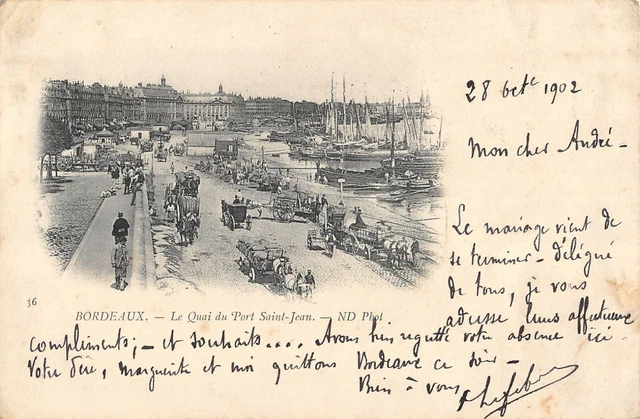 28 8bre 1902
Mon cher André -
Le mariage vient de
se terminer - délégué
de tous, je vous
adresse leurs affectueux
compliments; - et souhaits.... Avons bien regretté votre absence ici -
Votre père, Marguerite et moi quittons Bordeaux ce soir -
Bien à vous
Lefebvre
36
BORDEAUX. - Le Quai du Port Saint-Jean. - ND Phot